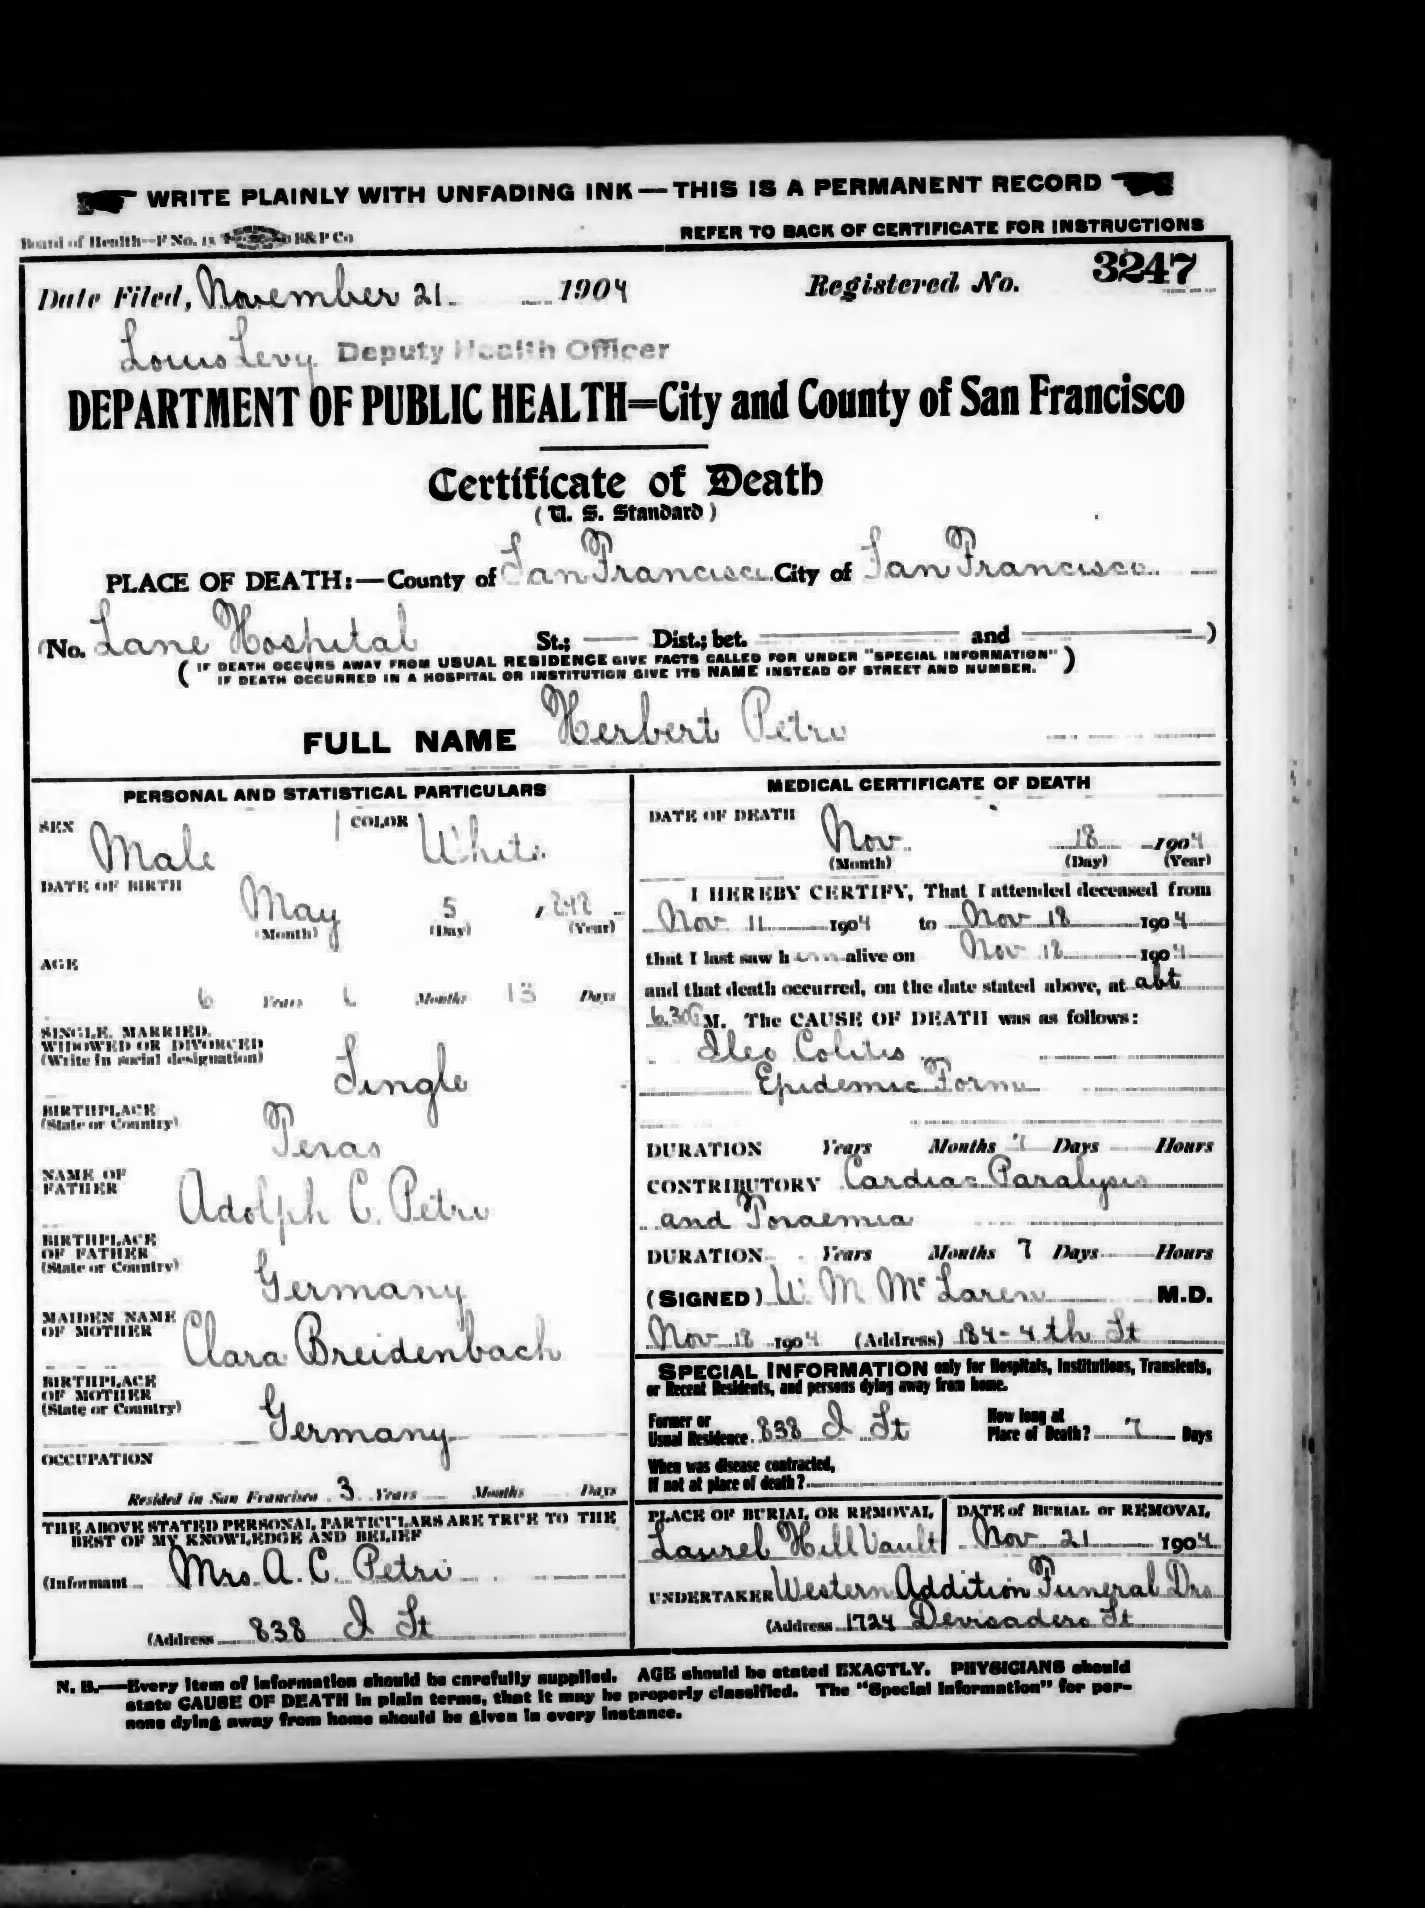 WRITE PLAINLY WITH UNFADING INK — THIS IS A PERMANENT RECORD
Board of Health—F No. 15 B&P Co
REFER TO BACK OF CERTIFICATE FOR INSTRUCTIONS
Date Filed, November 21. 1904 Registered No. 3247
Louis Levy Deputy Health Officer
DEPARTMENT OF PUBLIC HEALTH=City and County of San Francisco
Certificate of Death
(U. S. Standard)
PLACE OF DEATH:—County of San Francisco City of San Francisco
(No. Lane Hospital St.; Dist.; bet. and )
( IF DEATH OCCURS AWAY FROM USUAL RESIDENCE GIVE FACTS CALLED FOR UNDER "SPECIAL INFORMATION" )
IF DEATH OCCURRED IN A HOSPITAL OR INSTITUTION GIVE ITS NAME INSTEAD OF STREET AND NUMBER.
FULL NAME Herbert Petri
PERSONAL AND STATISTICAL PARTICULARS
SEX Male COLOR White
DATE OF BIRTH May 5
(Month) (Day) (Year)
AGE
6 Years 6 Months 13 Days
SINGLE, MARRIED,
WIDOWED OR DIVORCED
(Write in social designation)
Single
BIRTHPLACE
(State or Country)
Texas
NAME OF
FATHER
Adolph C. Petri
BIRTHPLACE
OF FATHER
(State or Country)
Germany
MAIDEN NAME
OF MOTHER
Clara Breidenbach
BIRTHPLACE
OF MOTHER
(State or Country)
Germany
OCCUPATION
Resided in San Francisco 3 Years Months Days
THE ABOVE STATED PERSONAL PARTICULARS ARE TRUE TO THE
BEST OF MY KNOWLEDGE AND BELIEF
(Informant Mrs. A. C. Petri
(Address 838 I St
MEDICAL CERTIFICATE OF DEATH
DATE OF DEATH
Nov. 18 1904
(Month) (Day) (Year)
I HEREBY CERTIFY, That I attended deceased from
Nov 11 1904 to Nov 18 1904
that I last saw him alive on Nov 18 1904
and that death occurred, on the date stated above, at abt
6.30 M. The CAUSE OF DEATH was as follows:
Ileo Colitis
Epidemic Form
DURATION Years Months 7 Days Hours
CONTRIBUTORY Cardiac Paralysis
and Toxaemia
DURATION Years Months 7 Days Hours
(SIGNED) W. M. McLaren M.D.
Nov 18 1904 (Address) 184-4th St
SPECIAL INFORMATION only for Hospitals, Institutions, Transients,
or Recent Residents, and persons dying away from home.
Former or
Usual Residence 838 I St
How long at
Place of Death? 7 Days
When was disease contracted,
If not at place of death?
PLACE OF BURIAL OR REMOVAL,
Laurel Hill Vault
DATE of BURIAL or REMOVAL,
Nov 21 1904
UNDERTAKER Western Addition Funeral Drs
(Address 1724 Devisadero St
N. B.—Every item of information should be carefully supplied. AGE should be stated EXACTLY. PHYSICIANS should
state CAUSE OF DEATH in plain terms, that it may be properly classified. The "Special Information" for per-
sons dying away from home should be given in every instance.